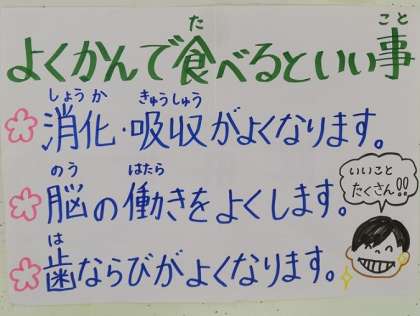 よくかんで食べるといい事
た
こと
消化・吸収がよくなります。
しょうか
きゅうしゅう
脳の働きをよくします。
のう
はたら
歯ならびがよくなります。
は
いいこと
たくさん!!